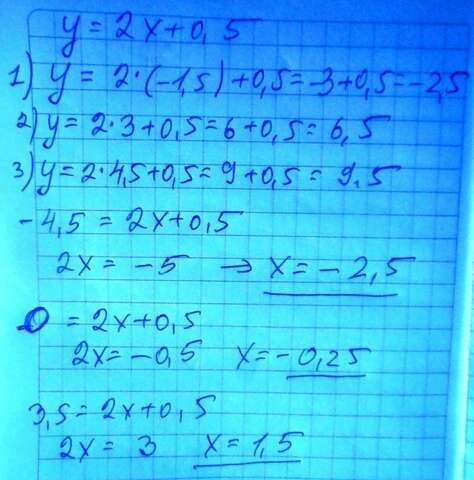 y = 2x+0,5
1) y = 2·(-1,5)+0,5=-3+0,5=-2,5
2) y = 2·3+0,5=6+0,5=6,5
3) y=2·4,5+0,5=9+0,5=9.5
-4,5 = 2x+0,5
2x = -5 → x=-2,5
0 = 2x+0,5
2x=-0,5 x=-0,25
3,5=2x+0,5
2x = 3 x=1,5